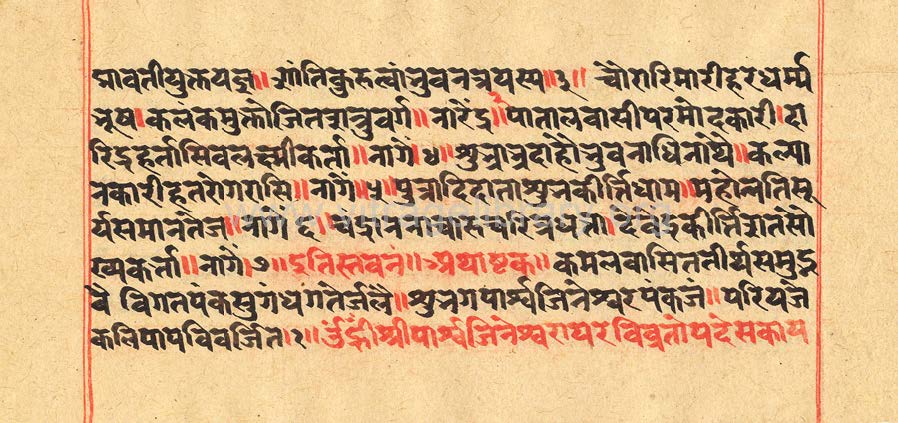 द्मावतीयुक्तयज्ञ॥ शांतिकुरुत्वांभुवनत्रयस्य॥३॥ चौरारिमारीहरधर्म्म
भूष।कलंकमुक्तोजितशत्रुवर्ग॥नारेंद्र॥पातालवासीपरमोदकारी।दा
रिद्रहर्तासिवलक्ष्मीकर्ता॥नागें।४।शुभ्राभ्रदाहोभुवनाधिनाथै॥कल्या
नकारीहतरोगरासि॥नागें॥५॥पुत्रादिदाताशुभकीर्त्तिधाम॥महोन्नतिसू
र्यसमानतेज॥नागें ६ चंद्राननाचारुचरित्रधर्ता।देवेंद्रकीर्त्तिशतसौ
ख्यकर्ता॥नागें।७॥इतिस्तवनं॥अथाष्टक॥कमलवासिततीर्थसमुद्भ
वै विगतपंकसुगंधगतेर्जलै॥शुभगपार्श्वजिनेश्वरपंकजं॥परियजे
कलिपापविवर्जित।१॥ र्उंह्रीश्रीपार्श्वजिनेश्वराय